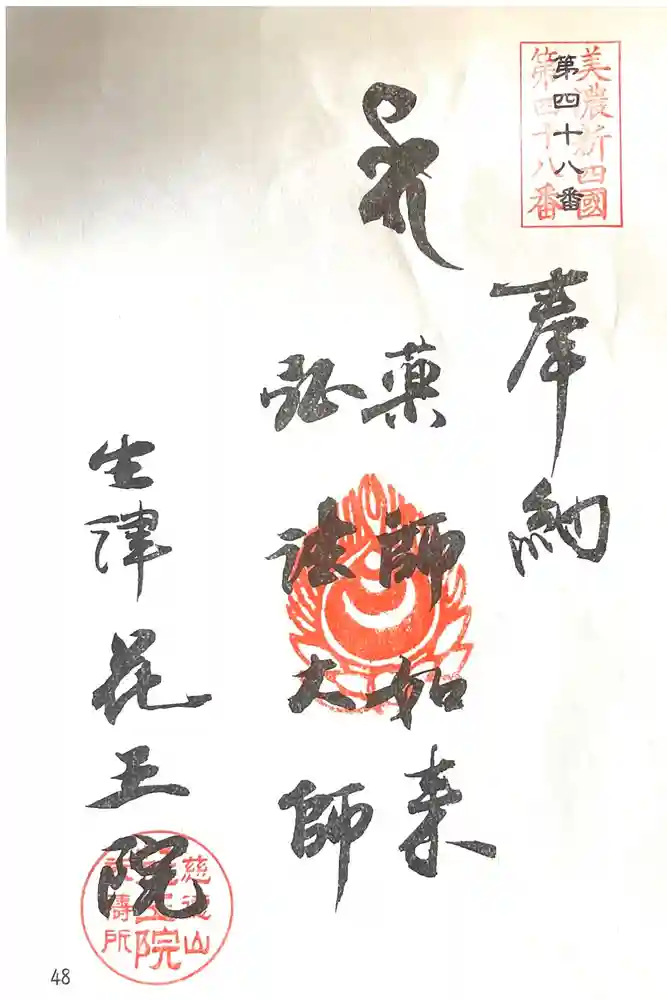 美濃新四國
第四十八番
第四十八番
奉納
薬師如来
弘法大師
生津花王院
慈徳山
花王院
祈祷所
48